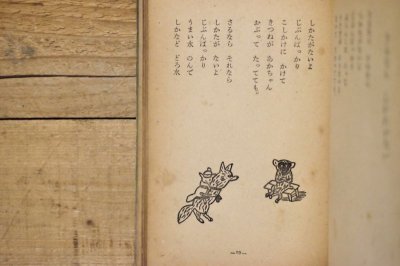 しかたがないよ
じぶんばっかり
こしかけに かけて
きつねが あかちゃん
おぶって たってても。
さるなら それなら
しかたが ないよ
じぶんばっかり
うまい水 のんで
しかなど どろ水